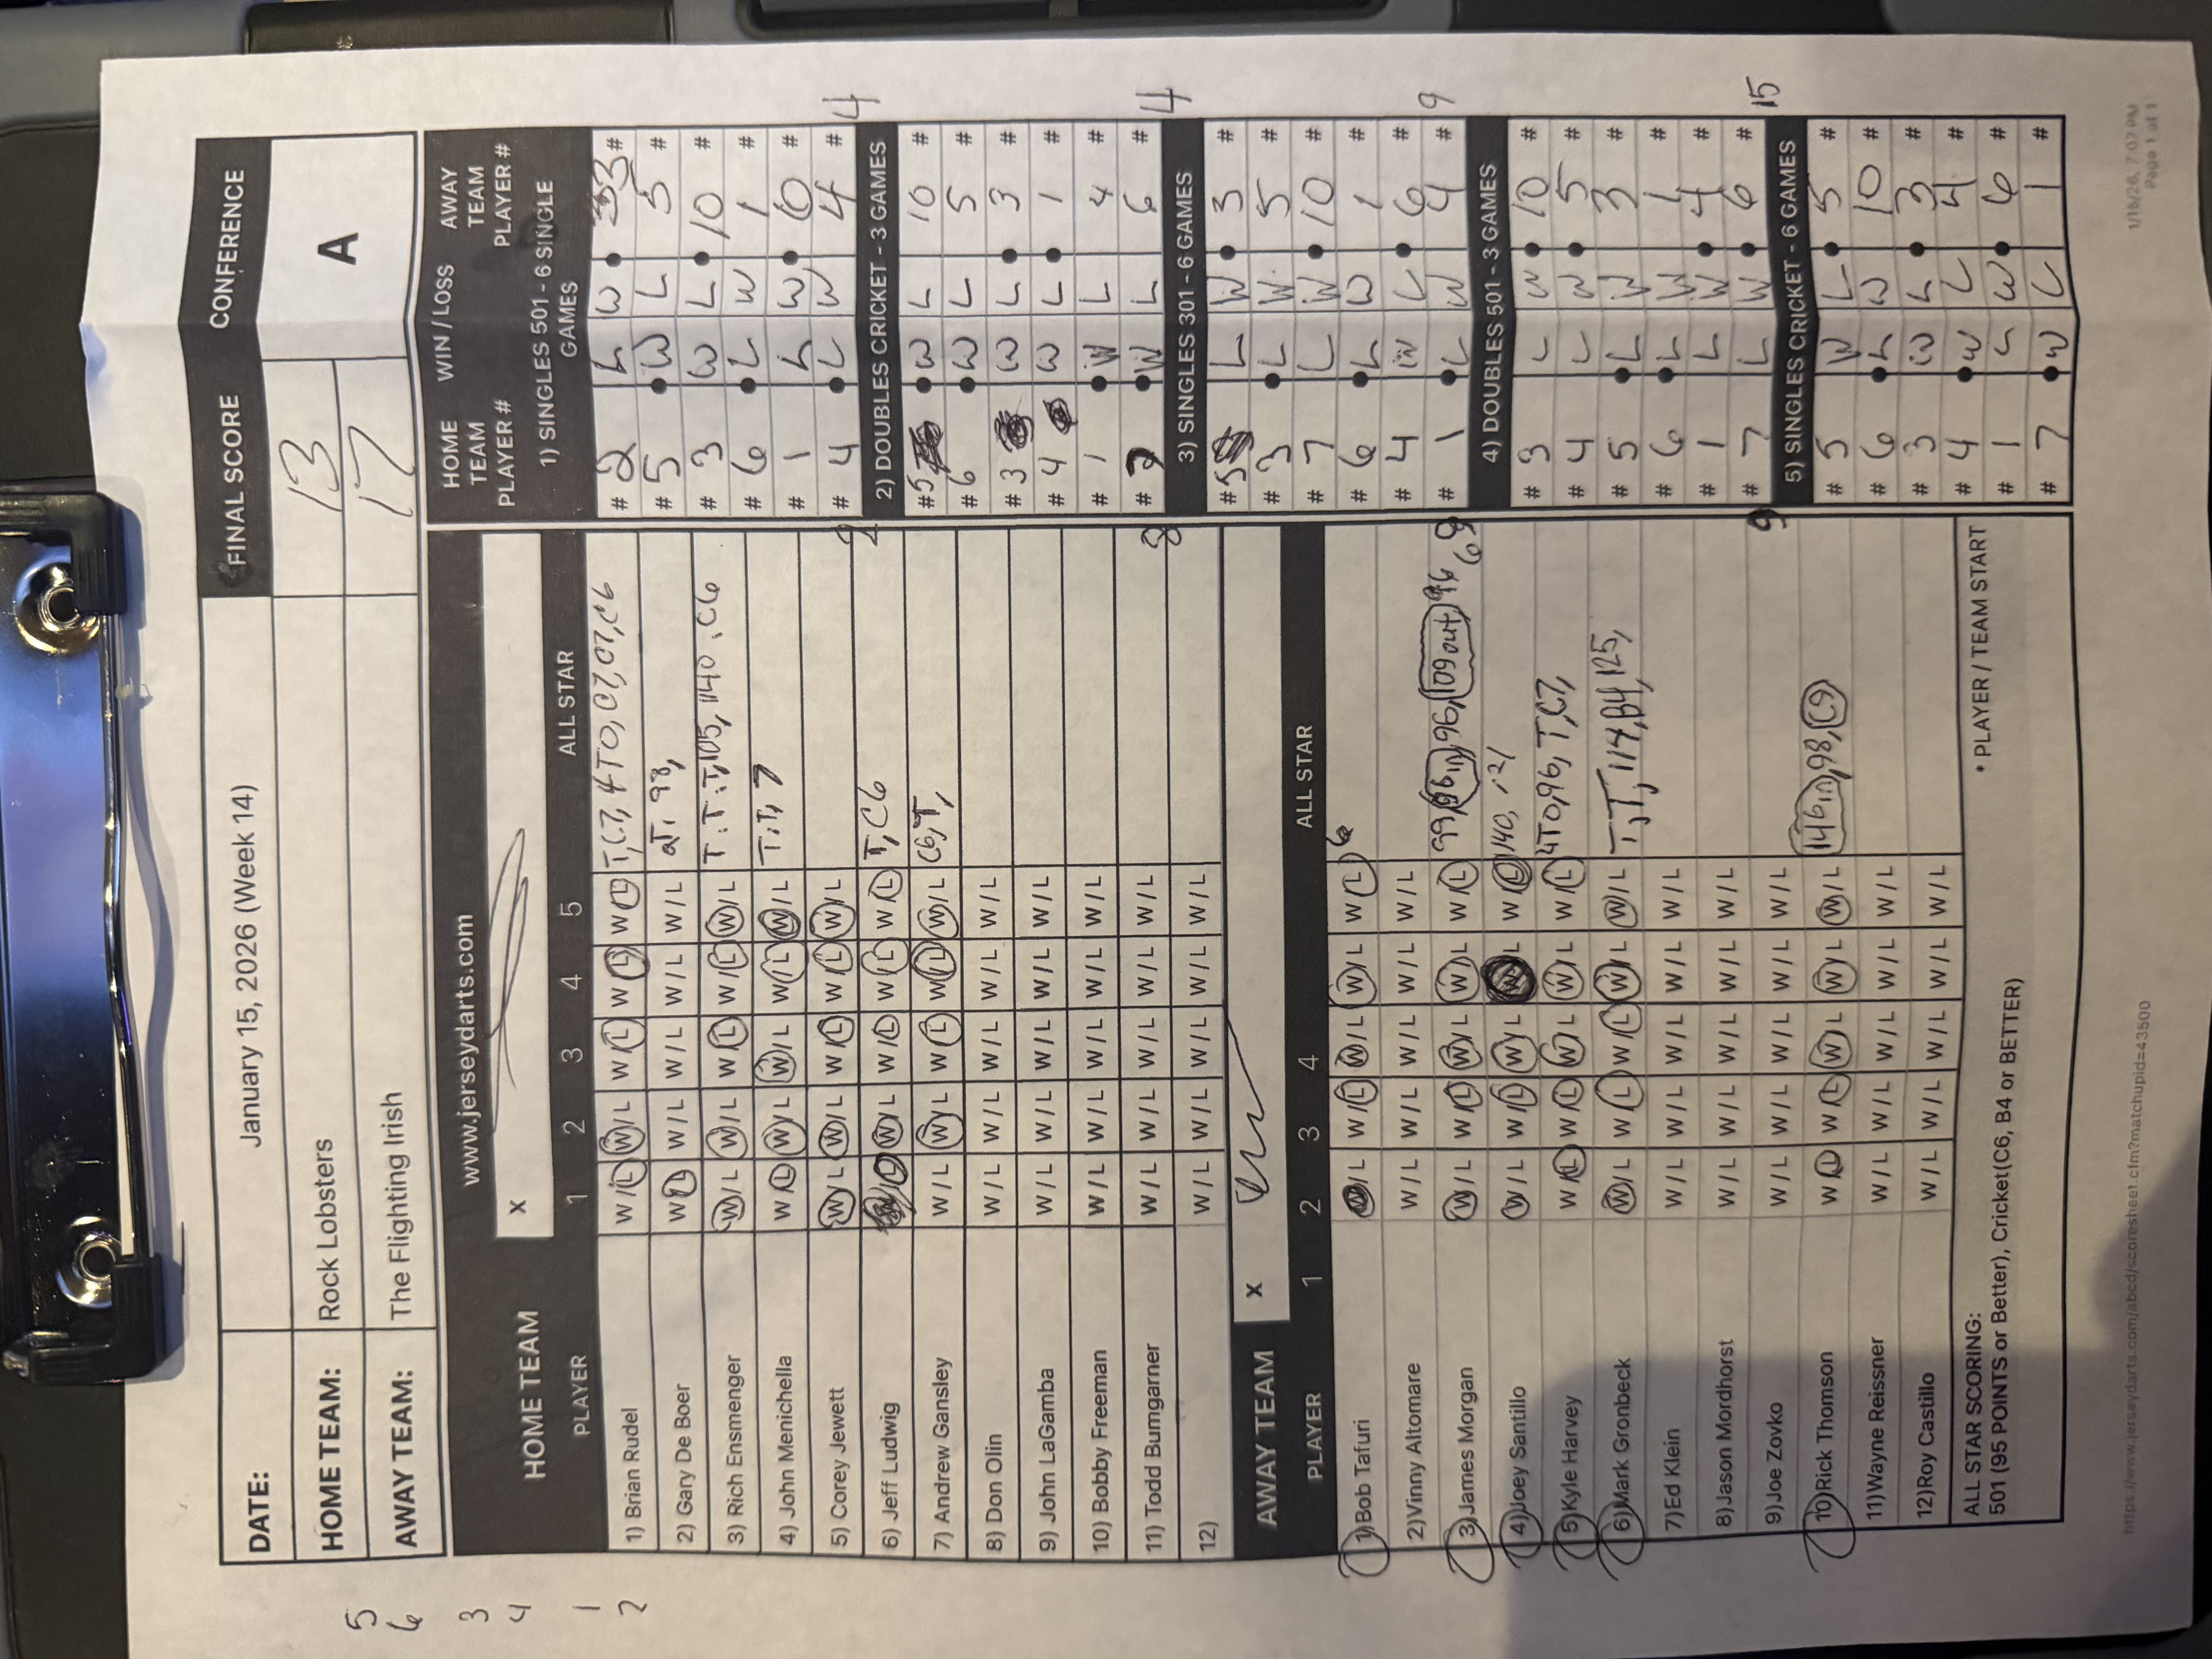 DATE: January 15, 2026 (Week 14) FINAL SCORE CONFERENCE
HOME TEAM: Rock Lobsters 13 A
AWAY TEAM: The Flighting Irish 17
5
6
3
4
1
2
www.jerseydarts.com
HOME TEAM X
PLAYER 1 2 3 4 5 ALL STAR
1) Brian Rudel W/L W/L W/L W/L W/L T, C7, 4T0, C7, C7, C6
2) Gary De Boer W/L W/L W/L W/L W/L 2T, 98,
3) Rich Ensmenger W/L W/L W/L W/L W/L T, T, T, 105, 140, C6
4) John Menichella W/L W/L W/L W/L W/L T, T, 7
5) Corey Jewett W/L W/L W/L W/L W/L
6) Jeff Ludwig W/L W/L W/L W/L T, C6
7) Andrew Gansley W/L W/L W/L W/L W/L C6, T,
8) Don Olin W/L W/L W/L W/L W/L
9) John LaGamba W/L W/L W/L W/L W/L
10) Bobby Freeman W/L W/L W/L W/L W/L
11) Todd Bumgarner W/L W/L W/L W/L W/L 8
12) W/L W/L W/L W/L W/L
AWAY TEAM X
PLAYER 1 2 3 4 ALL STAR
1)Bob Tafuri W/L W/L W/L W/L W/L 6
2)Vinny Altomare W/L W/L W/L W/L W/L
3)James Morgan W/L W/L W/L W/L W/L 99, 96in, 96, 109 out, 96, 69
4)Joey Santillo W/L W/L W/L W/L 140,
5)Kyle Harvey W/L W/L W/L W/L W/L 4T0, 96, T, C7,
6)Mark Gronbeck W/L W/L W/L W/L W/L T, T, 114, B4, 125,
7)Ed Klein W/L W/L W/L W/L W/L
8)Jason Mordhorst W/L W/L W/L W/L W/L
9)Joe Zovko W/L W/L W/L W/L W/L 9
10)Rick Thomson W/L W/L W/L W/L W/L 146in, 98, C9
11)Wayne Reissner W/L W/L W/L W/L W/L
12)Roy Castillo W/L W/L W/L W/L W/L
ALL STAR SCORING:
501 (95 POINTS or Better), Cricket(C6, B4 or BETTER) * PLAYER / TEAM START
HOME TEAM PLAYER # WIN / LOSS AWAY TEAM PLAYER #
1) SINGLES 501 - 6 SINGLE GAMES
# 2 L W 3 #
# 5 W L 5 #
# 3 W L 10 #
# 6 L W 1 #
# 1 L W 6 #
# 4 L W 4 #
4
2) DOUBLES CRICKET - 3 GAMES
# 5 W L 10 #
# 6 W L 5 #
# 3 W L 3 #
# 4 W L 1 #
# 1 W L 4 #
# 2 W L 6 #
4
3) SINGLES 301 - 6 GAMES
# 5 L W 3 #
# 3 L W 5 #
# 7 L W 10 #
# 6 L W 1 #
# 4 W L 6 #
# 1 L W 4 #
9
4) DOUBLES 501 - 3 GAMES
# 3 L W 10 #
# 4 L W 5 #
# 5 L W 3 #
# 6 L W 1 #
# 1 L W 4 #
# 7 L W 6 #
15
5) SINGLES CRICKET - 6 GAMES
# 5 W L 5 #
# 6 L W 10 #
# 3 W L 3 #
# 4 W L 4 #
# 1 L W 6 #
# 7 W L 1 #
https://www.jerseydarts.com/abcd/scoresheet.cfm?matchupid=43500
1/16/26, 7:07 PM
Page 1 of 1